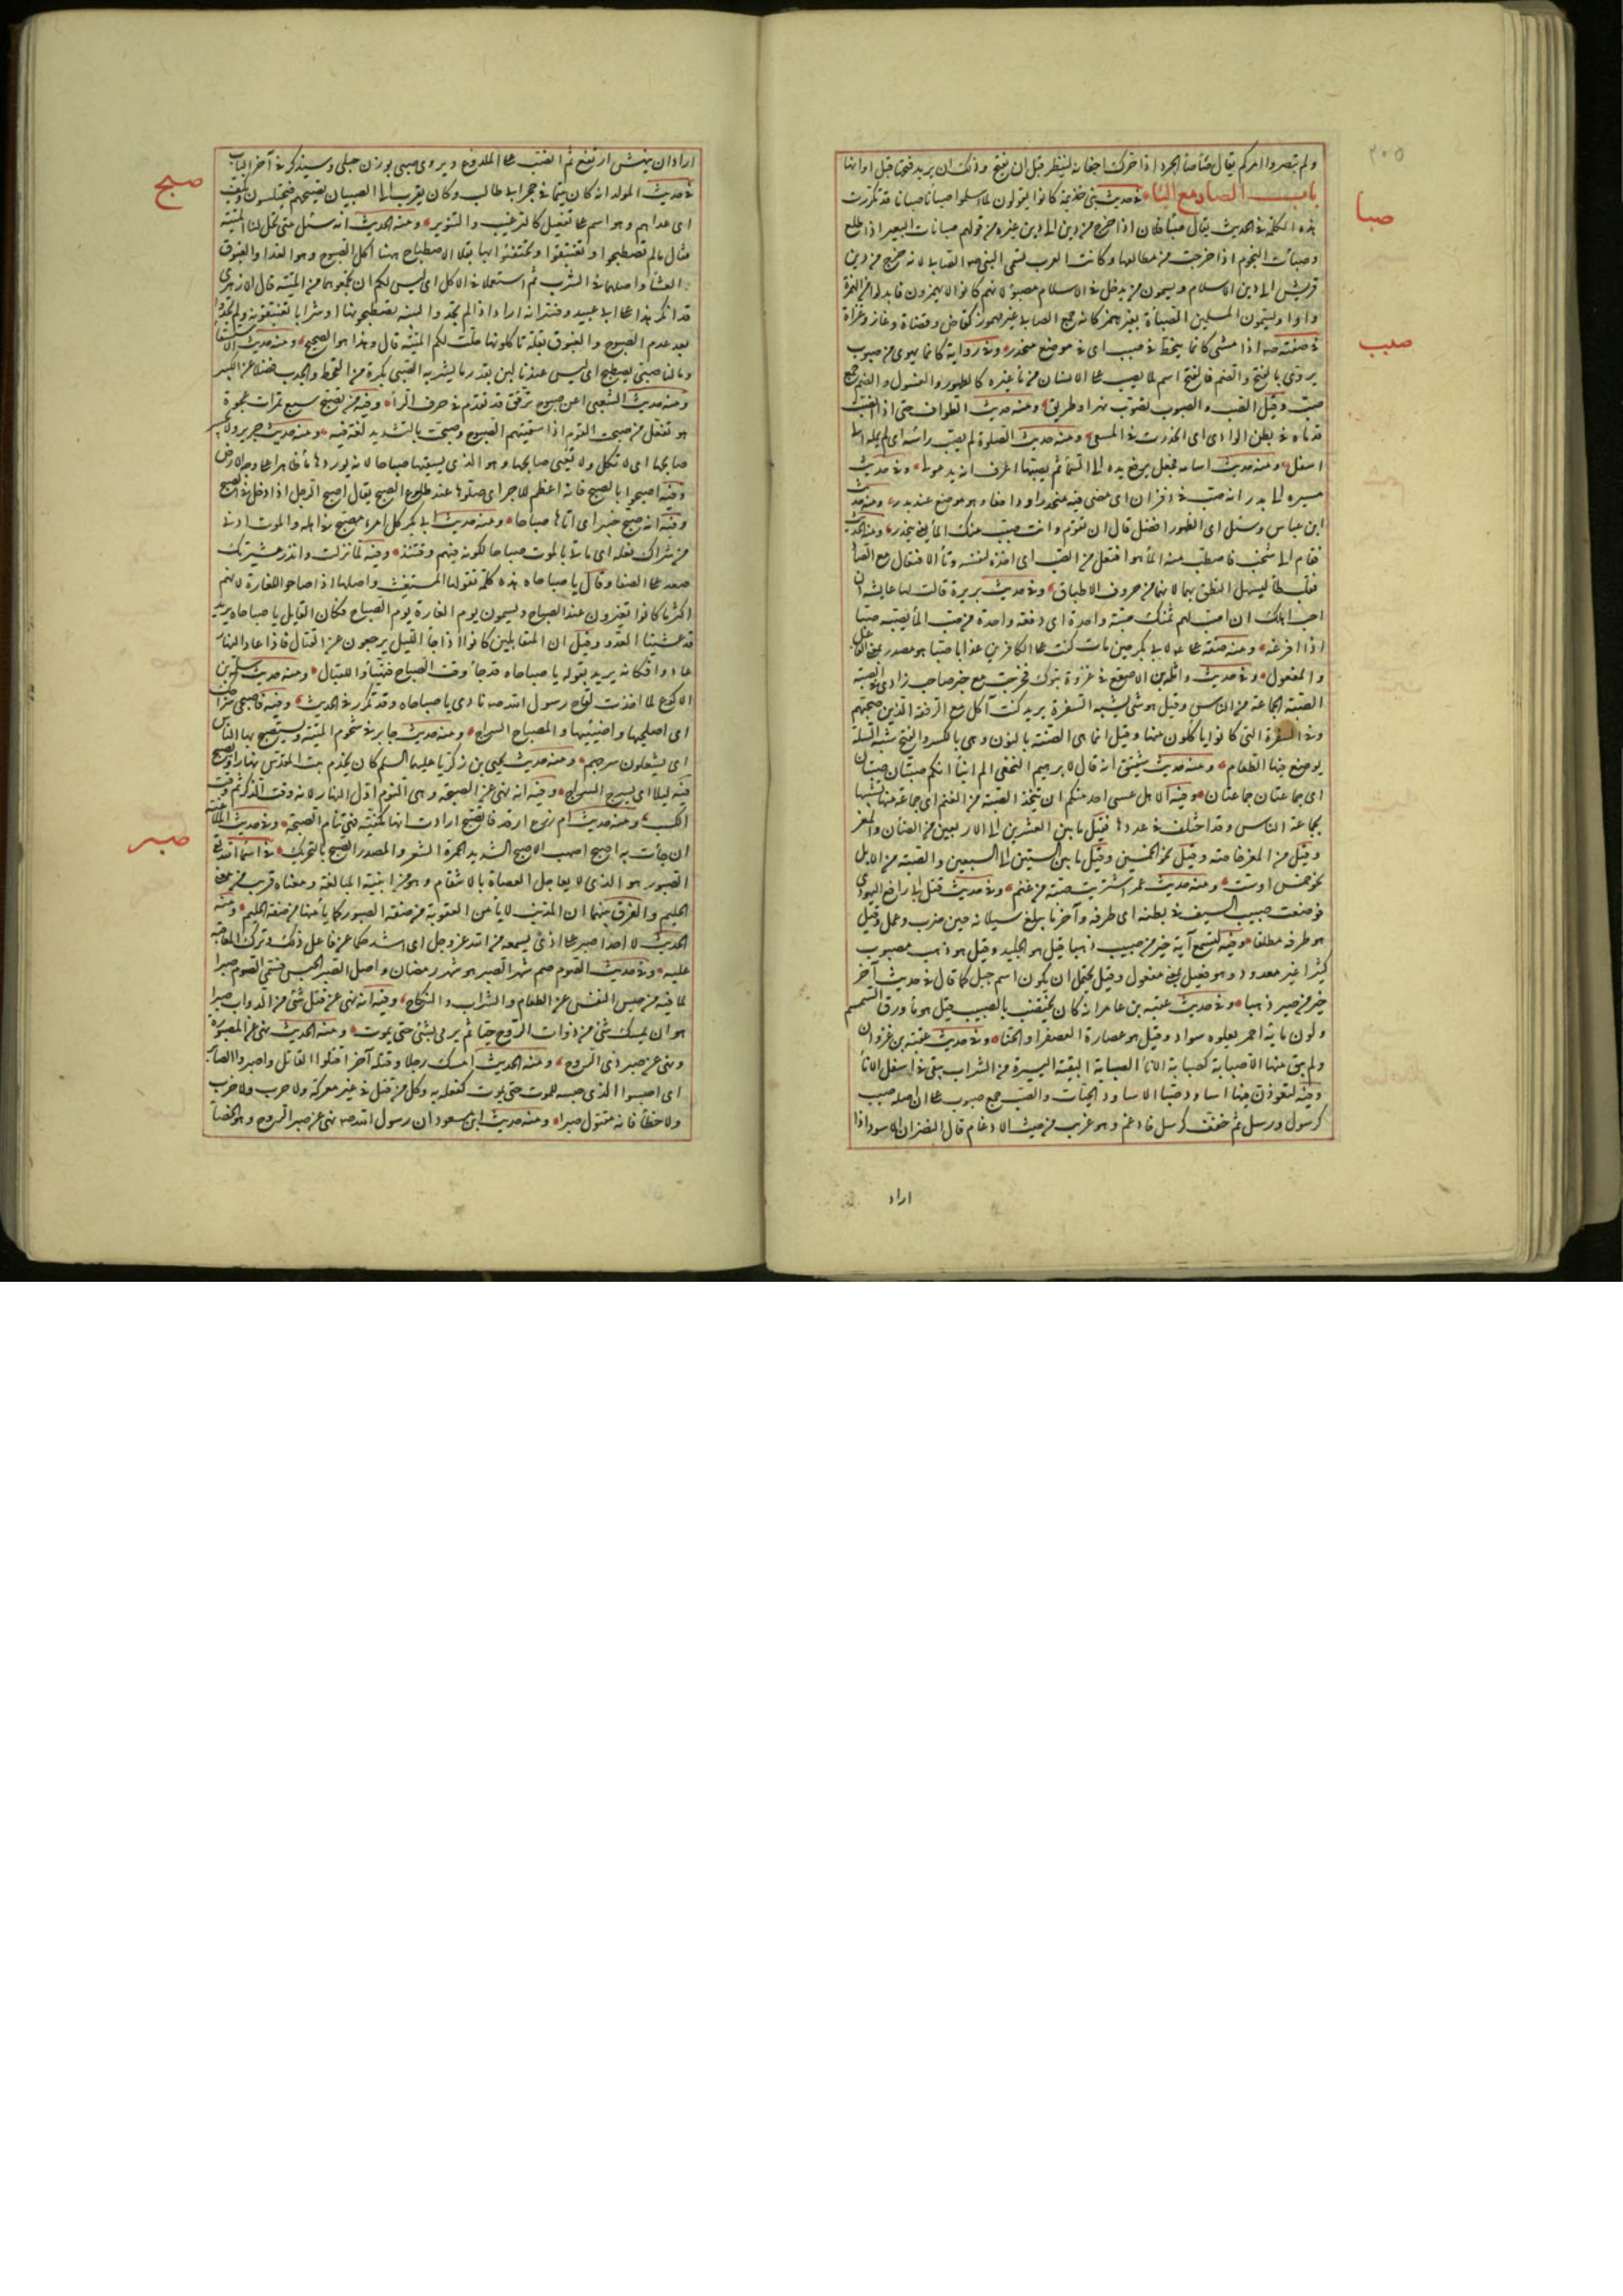 ولم تبصروا امركم يقال صَأصَأ الجرو اذا حرك اجفانه لينظر قبل ان يفتح وذلك ان يريد فتحها قبل اوانها
باب الصاد مع الباء في حديث بني جذيمة كانوا يقولون لما اسلموا صبأنا صبأنا قد تكررت
صبا
هذه الكلمة في الحديث يقال صبأ فلان اذا خرج من دين الى دين غيره من قولهم صبأ ناب البعير اذا طلع
وصبأت النجوم اذا خرجت من مطالعها وكانت العرب تسمي النبي صم الصابي لانه خرج من دين
قريش الى دين الاسلام ويسمون من يدخل في الاسلام مصبوًّا لانهم كانوا لا يهمزون فابدلوا من الهمزة
واوا ويسمون المسلمين الصباة بغير همز كانه جمع الصابي غير مهموز كقاض وقضاة وغاز وغزاة
في صفته صم اذا مشى كانما ينحط في صبب اي في موضع منحدر وفي رواية كانما يهوي من صبوب
صبب
يروى بالفتح والضم فالفتح اسم لما يصب على الانسان من ماء وغيره كالطهور والغسول والضم جمع
صبب وقيل الصبب والصبوب تصوب نهر او طريق ومنه حديث الطواف حتى اذا انصبت
قدماه في بطن الوادي اي انحدرت في المسعى ومنه حديث الصلوة لم يصب راسه اي لم يمله الى
اسفل ومنه حديث اسامة فجعل يرفع يده الى السماء ثم يصبها اعرف انه يدعو لي وفي حديث
مسيره الى بدر انه صب في ذفران اي مضى فيه منحدرا ودافعا وهو موضع عند بدر ومنه حديث
ابن عباس وسئل اي الطهور افضل قال ان تقوم وانت صبب منك الماء يعني يتحدر ومنه الحديث
فقام الى شجب فاصطب منه الماء هو افتعل من الصب اي اخذه لنفسه وتاء الافتعال مع الصاد
تقلب طاء ليسهل النطق بهما لانهما من حروف الاطباق وفي حديث بريرة قالت لها عايشه ان
احب اهلك ان اصب لهم ثمنك صبة واحدة اي دفعة واحدة من صب الماء يصبه صبا
اذا افرغه ومنه صفة علي لابي بكر حين مات كنت على الكافرين عذابا صبا هو مصدر بمعنى الفاعل
او المفعول وفي حديث واثلة بن الاسقع في غزوة تبوك فخرجت مع خير صاحب زادي في الصبة
الصبة الجماعة من الناس وقيل هو شي يشبه السفرة يريد كنت آكل مع الرفقة الذين صحبتهم
وفي السفرة التي كانوا ياكلون منها وقيل انما هي الصنة بالنون وهي بالكسر والفتح شبه السلة
يوضع فيها الطعام ومنه حديث شقيق انه قال لابرهيم النخعي الم انبأ انكم صبتان صبتان
اي جماعتان جماعتان وفيه الا هل عسى احد منكم ان يتخذ الصبة من الغنم اي جماعة منها تشبيها
بجماعة الناس وقد اختلف في عددها فقيل ما بين العشرين الى الاربعين من الضأن والمعز
وقيل من المعز خاصة وقيل نحو الخمسين وقيل ما بين الستين الى السبعين والصبة من الابل
نحو خمس او ست ومنه حديث عمر اشتريت صبة من غنم وفي حديث قتل ابي رافع اليهودي
فوضعت صبيب السيف في بطنه اي طرفه وآخر ما يبلغ سيلانه حين ضرب وعمل وقيل
هو طرفه مطلقا وفيه لتسمع آية خير من صبيب ذهبا قيل هو الجليد وقيل هو ذهب مصبوب
كثيرا غير معدود وهو فعيل بمعنى مفعول وقيل يحتمل ان يكون اسم جبل كما قال في حديث آخر
خير من صبير ذهبا وفي حديث عقبة بن عامر انه كان يختضب بالصبيب قيل هو ماء ورق السمسم
ولون مائه احمر يعلوه سواد وقيل هو عصارة العصفر او الحناء وفي حديث عتبة بن غزوان
ولم يبق منها الا صبابة كصبابة الاناء الصبابة البقية اليسيرة من الشراب يبقى في اسفل الاناء
وفيه لتعودن فيها اساود صبا الاساود الحيات والصب جمع صبوب على ان اصله صبب
كرسول ورسل ثم خفف كرسل فادغم وهو غريب من حيث الادغام قال النضر ان الاسود اذا
اراد
اراد ان ينهش ارتفع ثم انصب على الملدوغ ويروى صبى بوزن حبلى وسيذكر في آخر الباب
في حديث المولد انه كان يتيما في حجر ابي طالب وكان يقرب الى الصبيان تصبيحهم فيختلسون ويكف
صبح
اي غداءهم وهو اسم على تفعيل كالترعيب والتنوير ومنه الحديث انه سئل متى تحل لنا الميتة
فقال ما لم تصطبحوا او تغتبقوا او تحتفئوا بها بقلا الاصطباح ههنا اكل الصبوح وهو الغداء والغبوق
العشاء واصلهما في الشرب ثم استعملا في الاكل اي ليس لكم ان تجمعوهما من الميتة قال الازهري
قد انكر هذا على ابي عبيد وفسر انه اراد اذا لم تجدوا لبينة تصطبحونها او شرابا تغتبقونه ولم تجدوا
بعد عدم الصبوح والغبوق بقلة تاكلونها حلت لكم الميتة قال وهذا هو الصحيح ومنه حديث الاستسقاء
وما لنا صبي يصطبح اي ليس عندنا لبن بقدر ما يشربه الصبي بكرة من القحط والجدب فضلا عن الكبير
ومنه حديث الشعبي اعن صبوح ترقق قد تقدم في حرف الراء وفيه من تصبح سبع تمرات عجوة
هو تفعل من صبحت القوم اذا سقيتهم الصبوح وصبحت بالتشديد لغة فيه ومنه حديث جرير ولا يحسر
صابحها اي لا تكل ولا تعيى صابحها وهو الذي يسقيها صباحا لانه يوردها ماء ظاهرا على وجه الارض
وفيه اصبحوا بالصبح فانه اعظم للاجر اي صلوها عند طلوع الصبح يقال اصبح الرجل اذا دخل في الصبح
وفيه انه صبح خيبر اي اتاها صباحا ومنه حديث ابي بكر كل امرئ مصبح في اهله والموت ادنى
من شراك نعله اي مأتي بالموت صباحا لكونه فيهم وقتئذ وفيه لما نزلت وانذر عشيرتك
صعد على الصفا وقال يا صباحاه هذه كلمة تقولها المستغيث واصلها اذا صاحوا للغارة لانهم
اكثر ما كانوا يغيرون عند الصباح ويسمون يوم الغارة يوم الصباح فكان القايل يا صباحاه يريد
قد غشينا العدو وقيل ان المتقابلين كانوا اذا جاء الليل يرجعون عن القتال فاذا عاد النهار
عادوا فكانه يريد بقوله يا صباحاه قد جاء وقت الصباح فتهيأوا للقتال ومنه حديث سلمة بن
الاكوع لما اخذت لقاح رسول الله صم نادى يا صباحاه وقد تكرر في الحديث وفيه فاصبحي سراجك
اي اصلحيها واضيئيها والمصباح السراج ومنه حديث جابر في شحوم الميتة ويستصبح بها الناس
اي يشعلون سرجهم ومنه حديث يحيى بن زكريا عليهما السلم كان يخدم بيت المقدس نهارا ويصبح
فيه ليلا اي يسرج السراج وفيه انه نهى عن الصبحة وهي النوم اول النهار لانه وقت الذكر ثم وقت
الكسب ومنه حديث ام زرع ارقد فاتصبح ارادت انها مكفية فهي تنام الصبحة وفي حديث الملاعنة
ان جاءت به اصبح اصهب الاصبح الشديد الحمرة الشعر والمصدر الصبح بالتحريك في اسماء الله تع
صبر
الصبور هو الذي لا يعاجل العصاة بالانتقام وهو من ابنية المبالغة ومعناه قريب من معنى
الحليم والفرق بينهما ان المذنب لا يأمن العقوبة من صفة الصبور كما يأمنها من صفة الحليم ومنه
الحديث لا احد اصبر على اذى يسمعه من الله عز وجل اي اشد حلما عن فاعل ذلك وترك المعاقبة
عليه وفي حديث الصوم صم شهر الصبر هو شهر رمضان واصل الصبر الحبس فسمي الصوم صبرا
لما فيه من حبس النفس عن الطعام والشراب والنكاح وفيه انه نهى عن قتل شئ من الدواب صبرا
هو ان يمسك شئ من ذوات الروح حيا ثم يرمى بشئ حتى يموت ومنه الحديث نهى عن المصبورة
ونهى عن صبر ذي الروح ومنه الحديث امسك رجلا وقتله آخر اقتلوا القاتل واصبروا الصابر
اي احبسوا الذي حبسه للموت حتى يموت كفعله به وكل من قتل في غير معركة ولا حرب ولا
ولا خطأ فانه مقتول صبرا ومنه حديث ابن مسعود ان رسول الله صم نهى عن صبر الروح وهو الخصاء